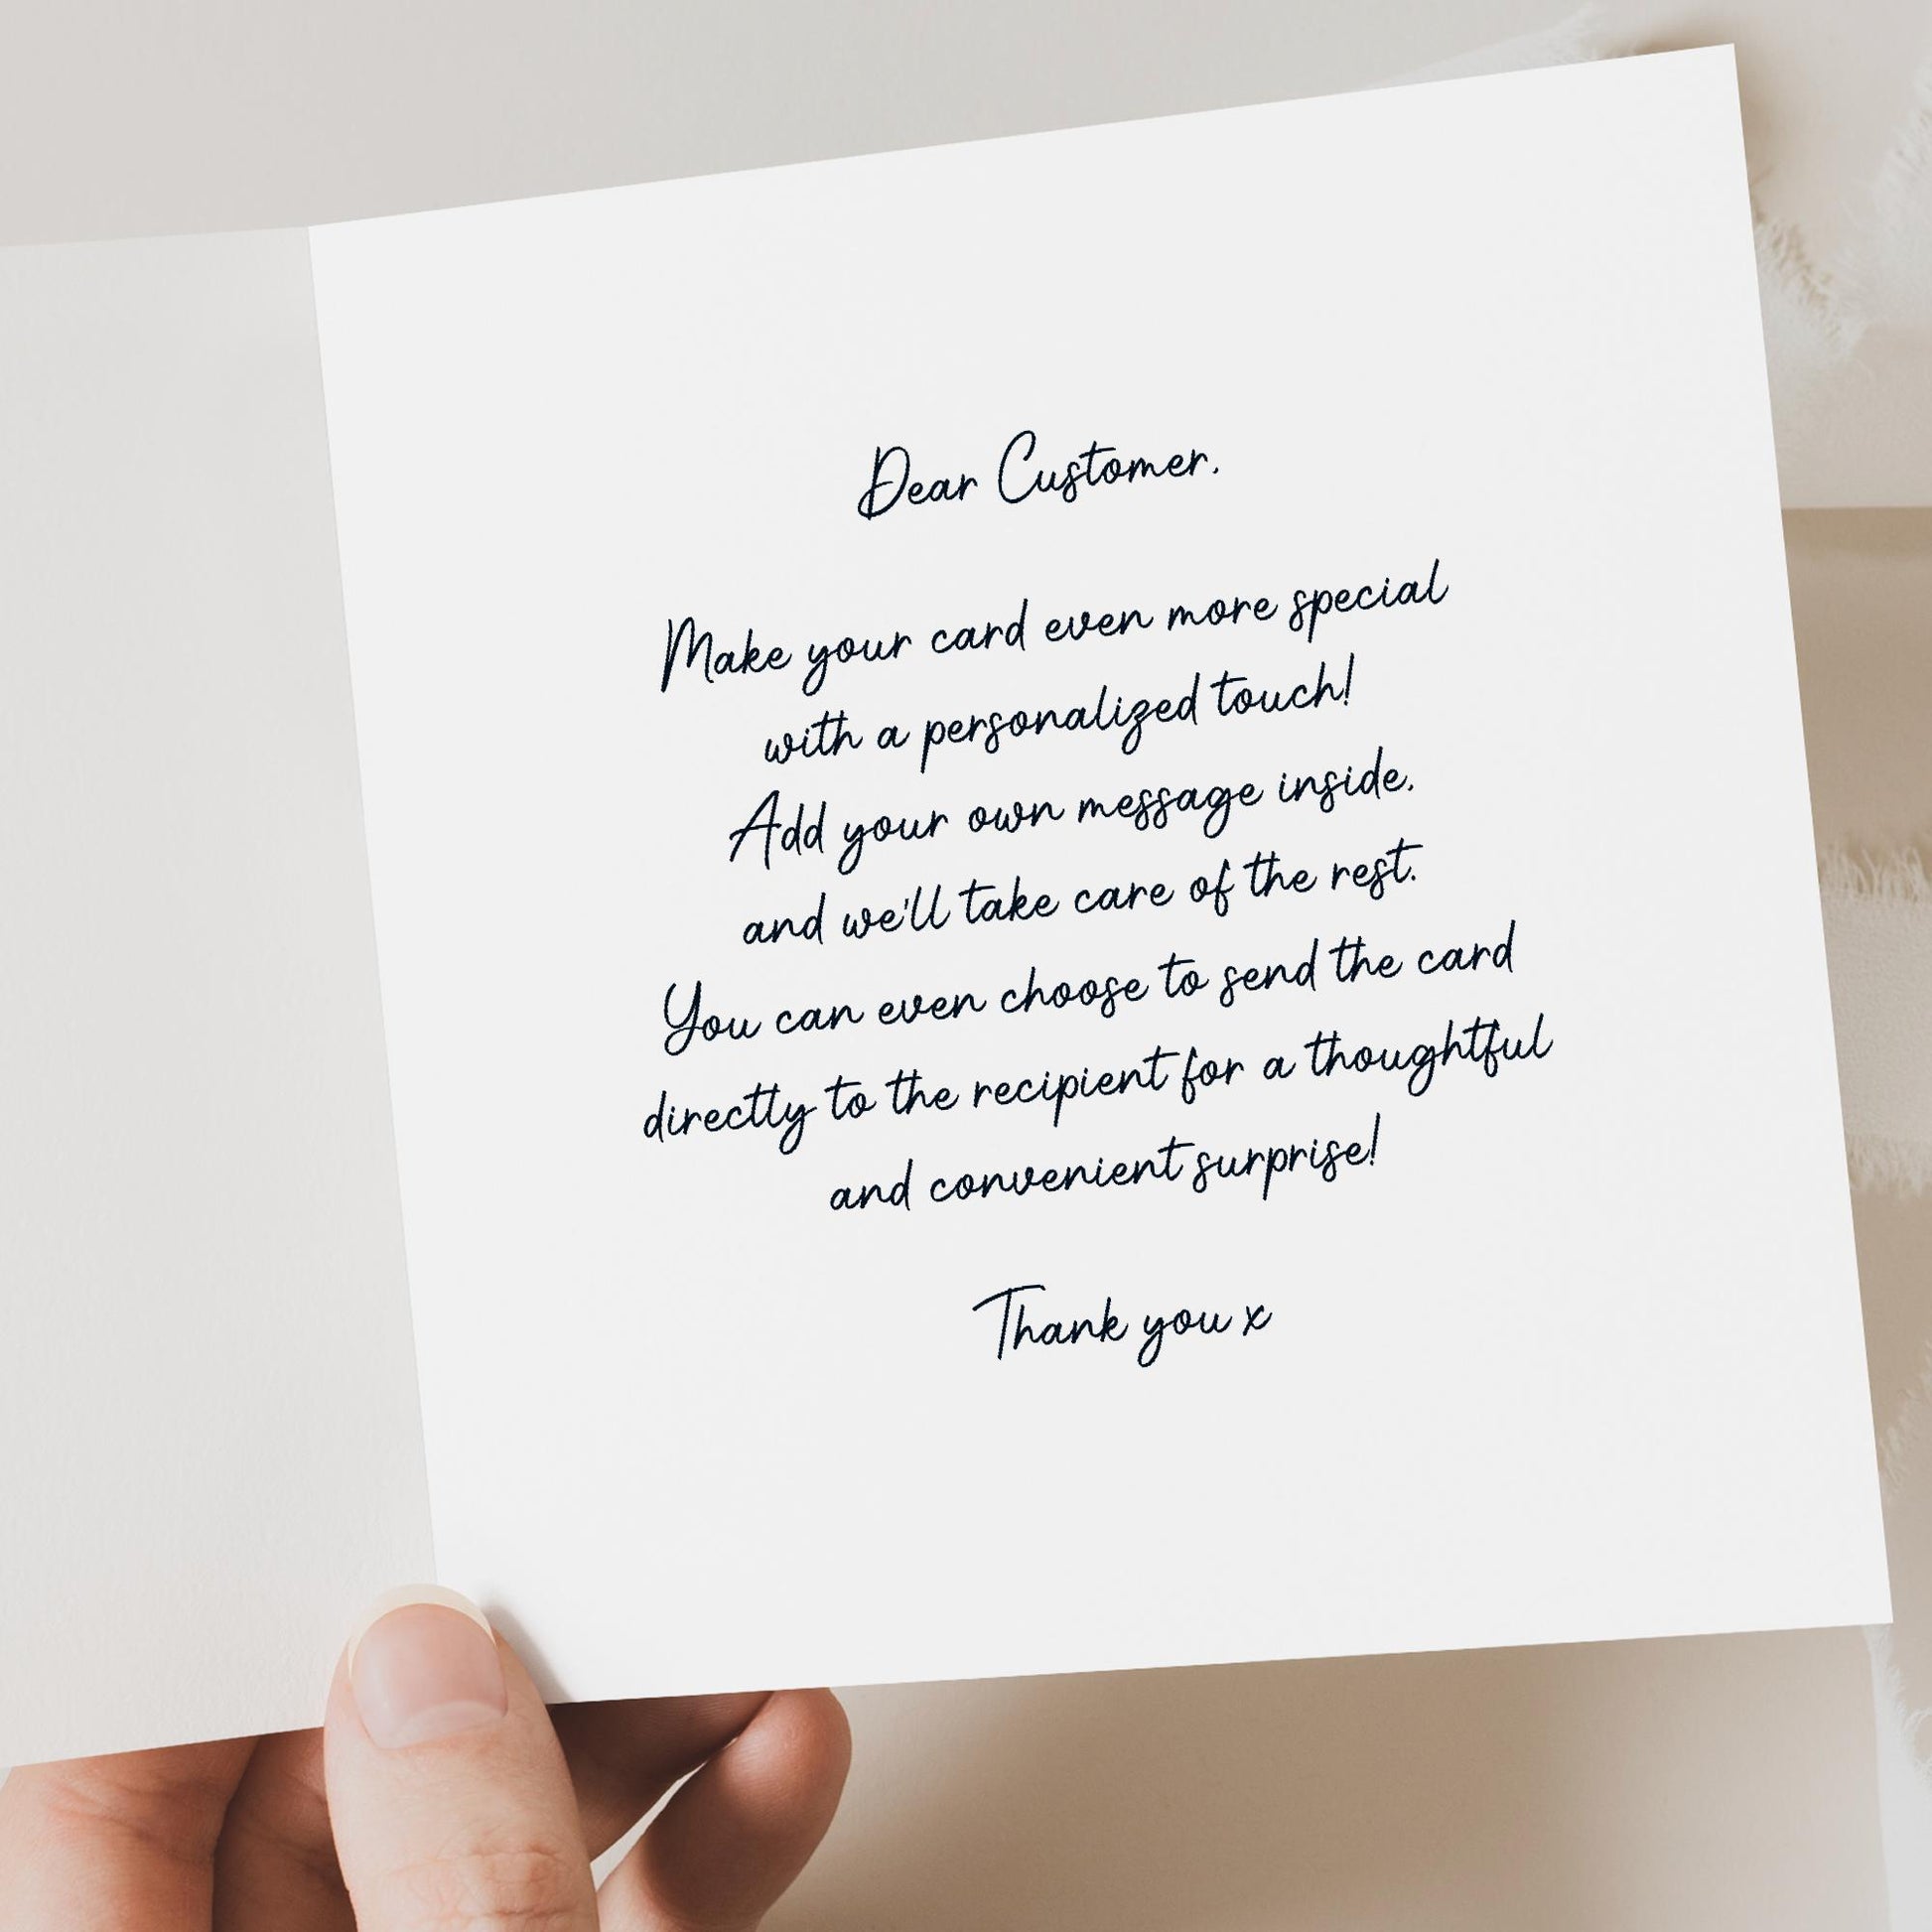 Dear Customer,
Make your card even more special
with a personalized touch!
Add your own message inside,
and we'll take care of the rest.
You can even choose to send the card
directly to the recipient for a thoughtful
and convenient surprise!
Thank you x